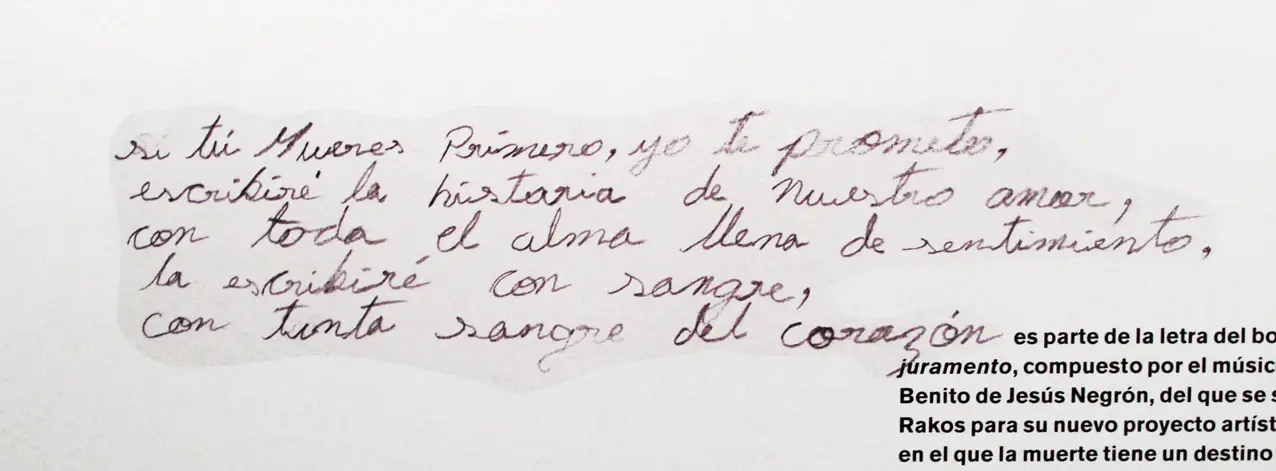 si tú Mueres Primero, yo te prometo,
escribiré la historia de nuestro amor,
con toda el alma llena de sentimiento,
la escribiré con sangre,
con tinta sangre del corazón es parte de la letra del bo
juramento, compuesto por el músic
Benito de Jesús Negrón, del que se s
Rakos para su nuevo proyecto artíst
en el que la muerte tiene un destino